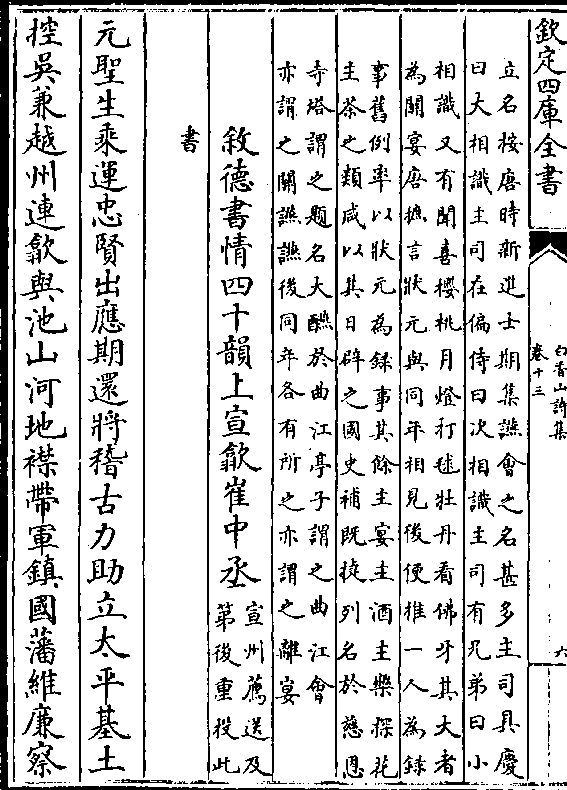 欽定四庫全書
白香山詩集
卷十三
六
立名按唐時新進士期集讌會之名甚多主司具慶
曰大相識主司在偏侍曰次相識主司有兄弟曰小
相識又有聞喜櫻桃月燈打毬牡丹看佛牙其大者
為關宴唐摭言狀元與同年相見後便推一人為録
事舊例率以狀元為録事其餘主宴主酒主樂探花
主茶之類咸以其日辟之國史補既捷列名於慈恩
寺塔謂之題名大醼於曲江亭子謂之曲江會
亦謂之關讌讌後同年各有所之亦謂之離宴
敘德書情四十韻上宣歙崔中丞
宣州薦送及
第後重投此
書
元聖生乘運忠賢出應期還將稽古力助立太平基土
控吳兼越州連歙與池山河地襟帶軍鎮國藩維廉察